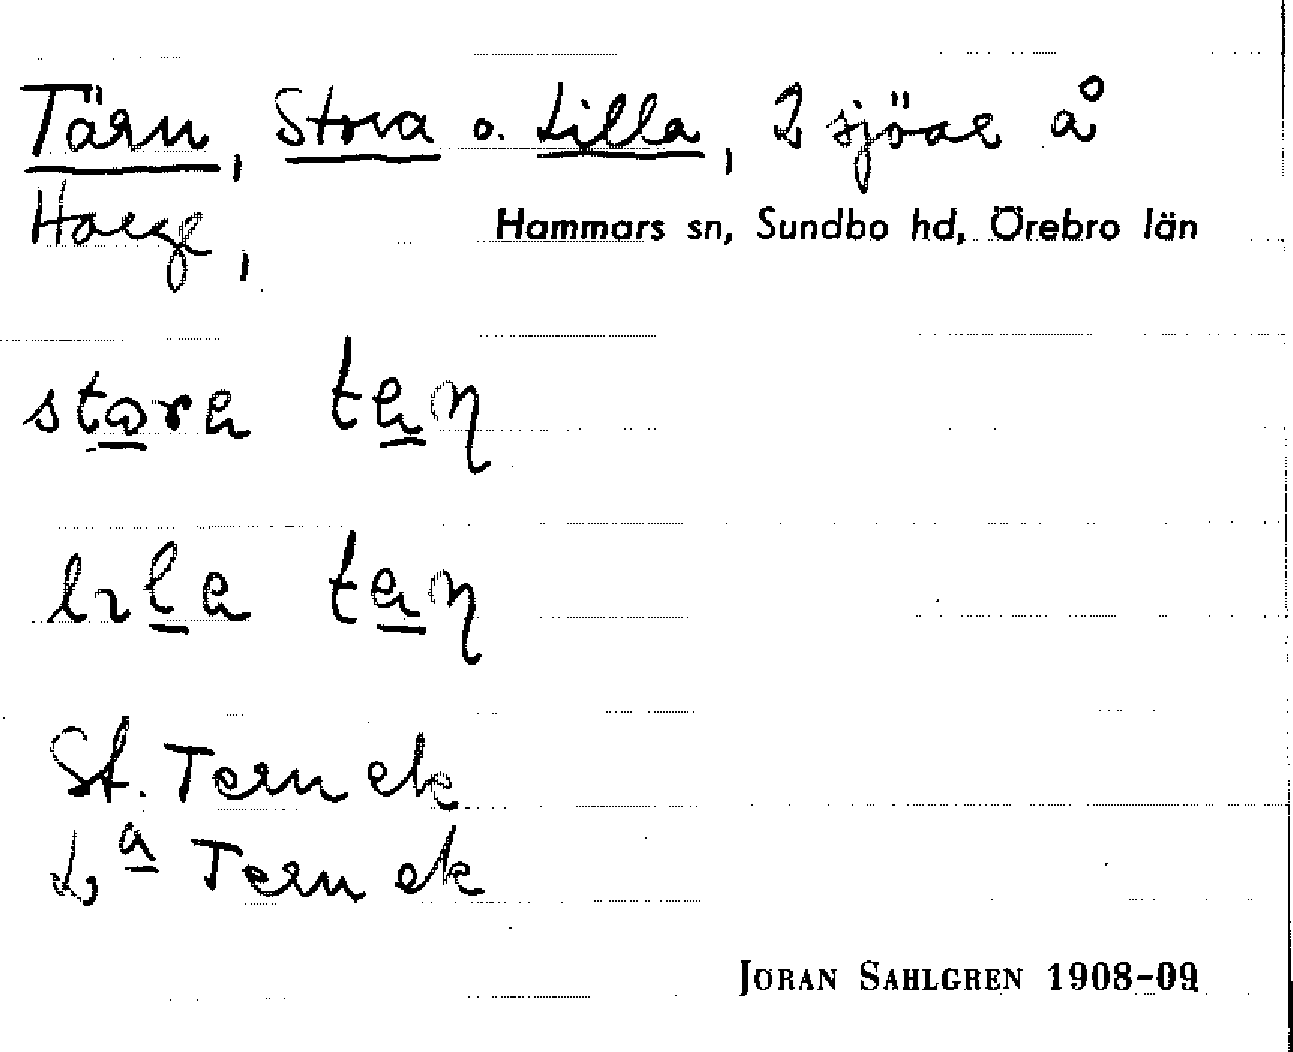 Tärn, Stora o. Lilla, 2 sjöar å
Harge, Hammars sn, Sundbo hd, Örebro län
St. Tern ek
La Tern ek
JÖRAN SAHLGREN 1908-09